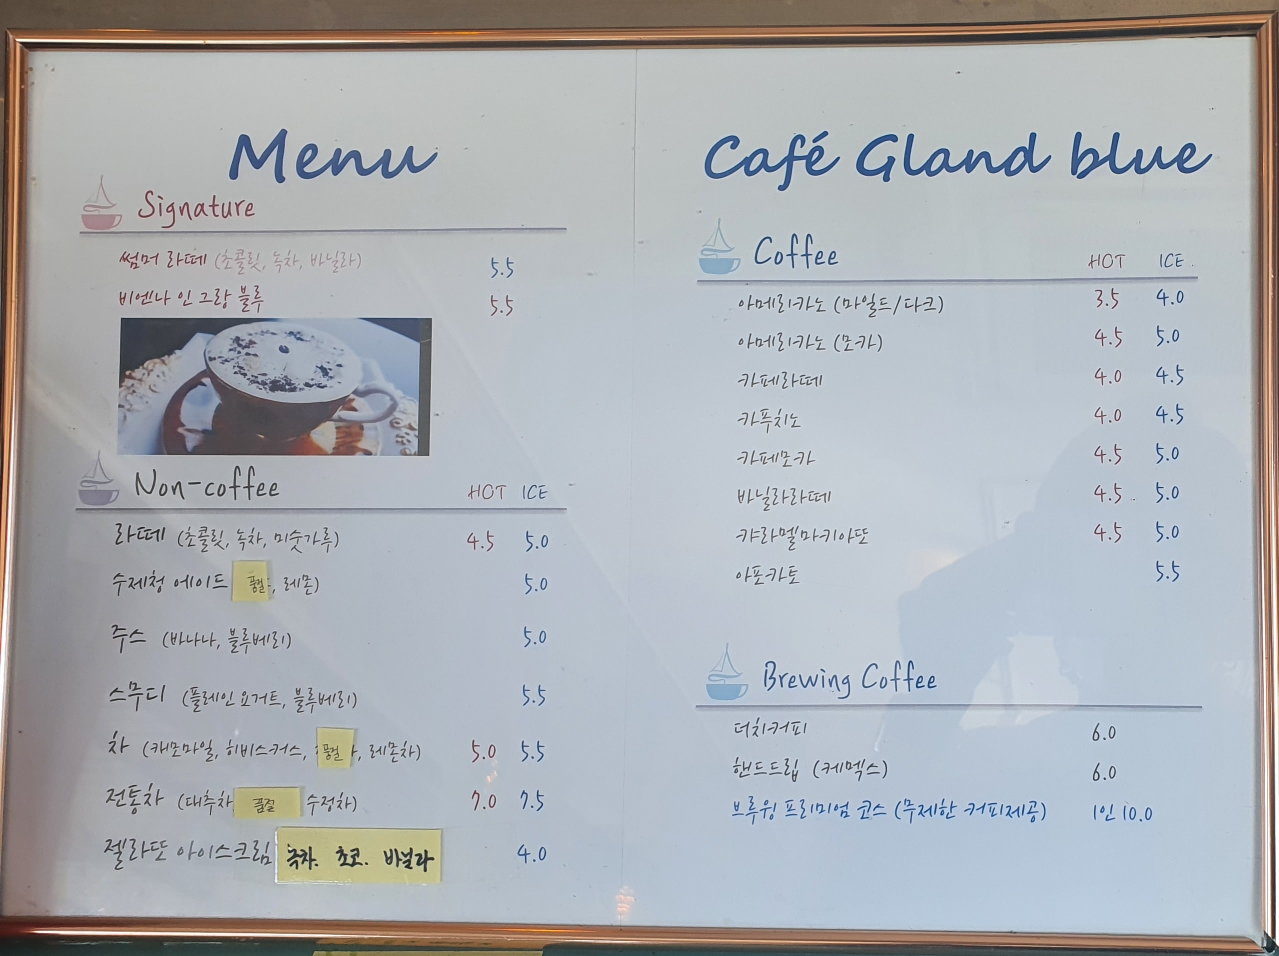 Menu
Signature
썸머 라떼 (초콜릿, 녹차, 바닐라) 5.5
비엔나 인 그랑 블루 5.5
Non-coffee HOT ICE
라떼 (초콜릿, 녹차, 미숫가루) 4.5 5.0
수제청 에이드 품절, 레몬) 5.0
주스 (바나나, 블루베리) 5.0
스무디 (플레인 요거트, 블루베리) 5.5
차 (캐모마일, 히비스커스, 품절, 레몬차) 5.0 5.5
전통차 (대추차 품절 수정차) 7.0 7.5
젤라또 아이스크림 녹차. 초코. 바닐라 4.0
Café Gland blue
Coffee HOT ICE
아메리카노 (마일드/다크) 3.5 4.0
아메리카노 (모카) 4.5 5.0
카페라떼 4.0 4.5
카푸치노 4.0 4.5
카페모카 4.5 5.0
바닐라라떼 4.5 5.0
캬라멜마키아또 4.5 5.0
아포카토 5.5
Brewing Coffee
더치커피 6.0
핸드드립 (케멕스) 6.0
브루윙 프리미엄 코스 (무제한 커피제공) 1인 10.0